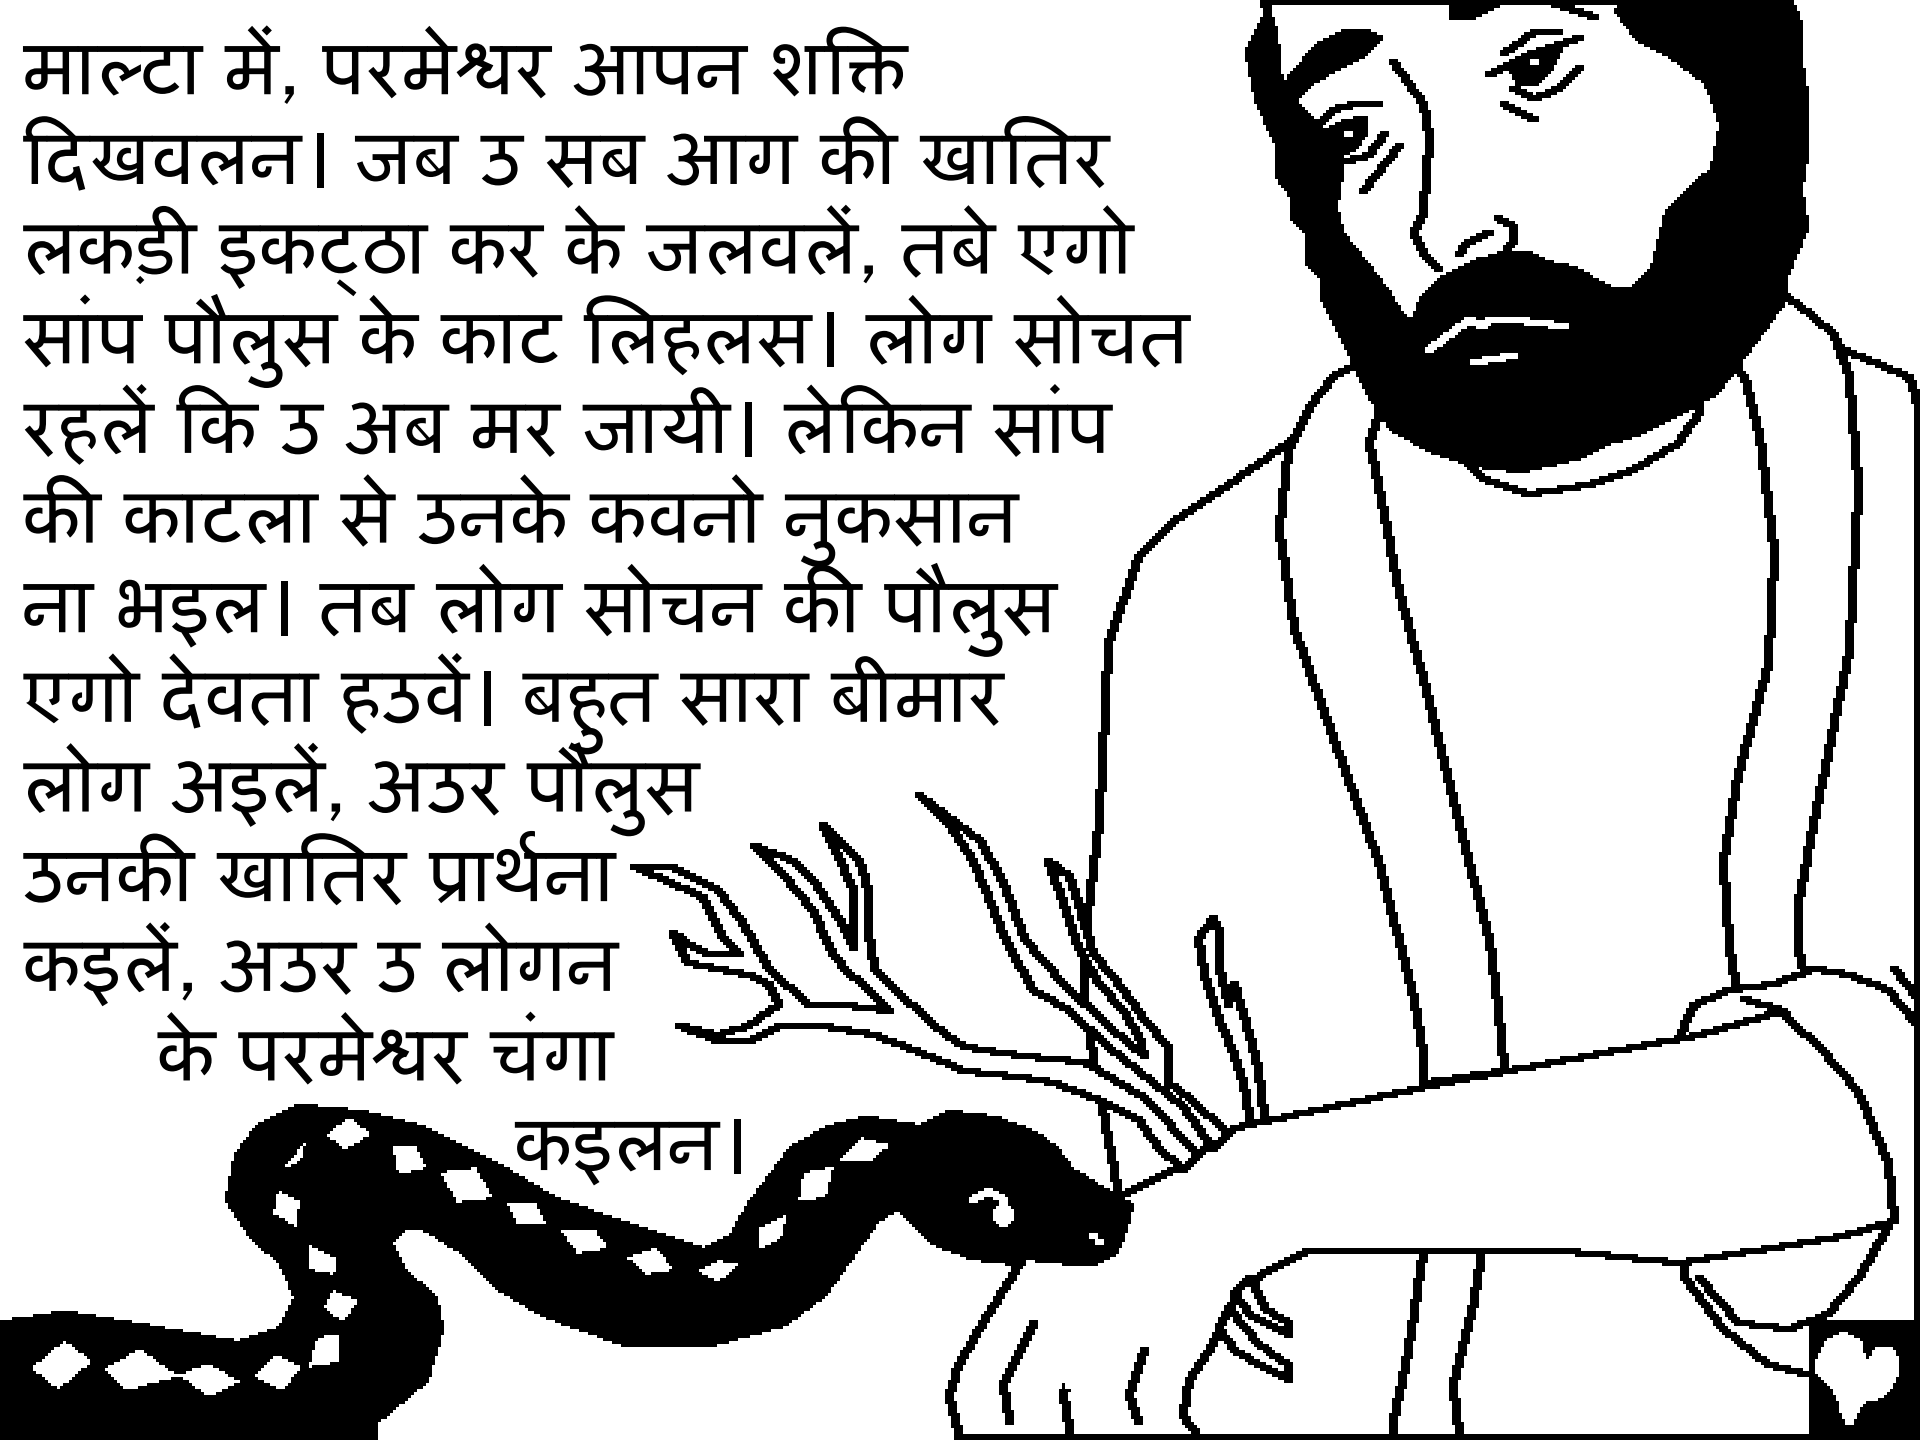 माल्टा में, परमेश्वर आपन शक्ति
दिखवलन। जब उ सब आग की खातिर
लकड़ी इकट्ठा कर के जलवलें, तबे एगो
सांप पौलुस के काट लिहलस। लोग सोचत
रहलें कि उ अब मर जायी। लेकिन सांप
की काटला से उनके कवनो नुकसान
ना भइल। तब लोग सोचन की पौलुस
एगो देवता हउवें। बहुत सारा बीमार
लोग अइलें, अउर पौलुस
उनकी खातिर प्रार्थना
कइलें, अउर उ लोगन
के परमेश्वर चंगा
कइलन।